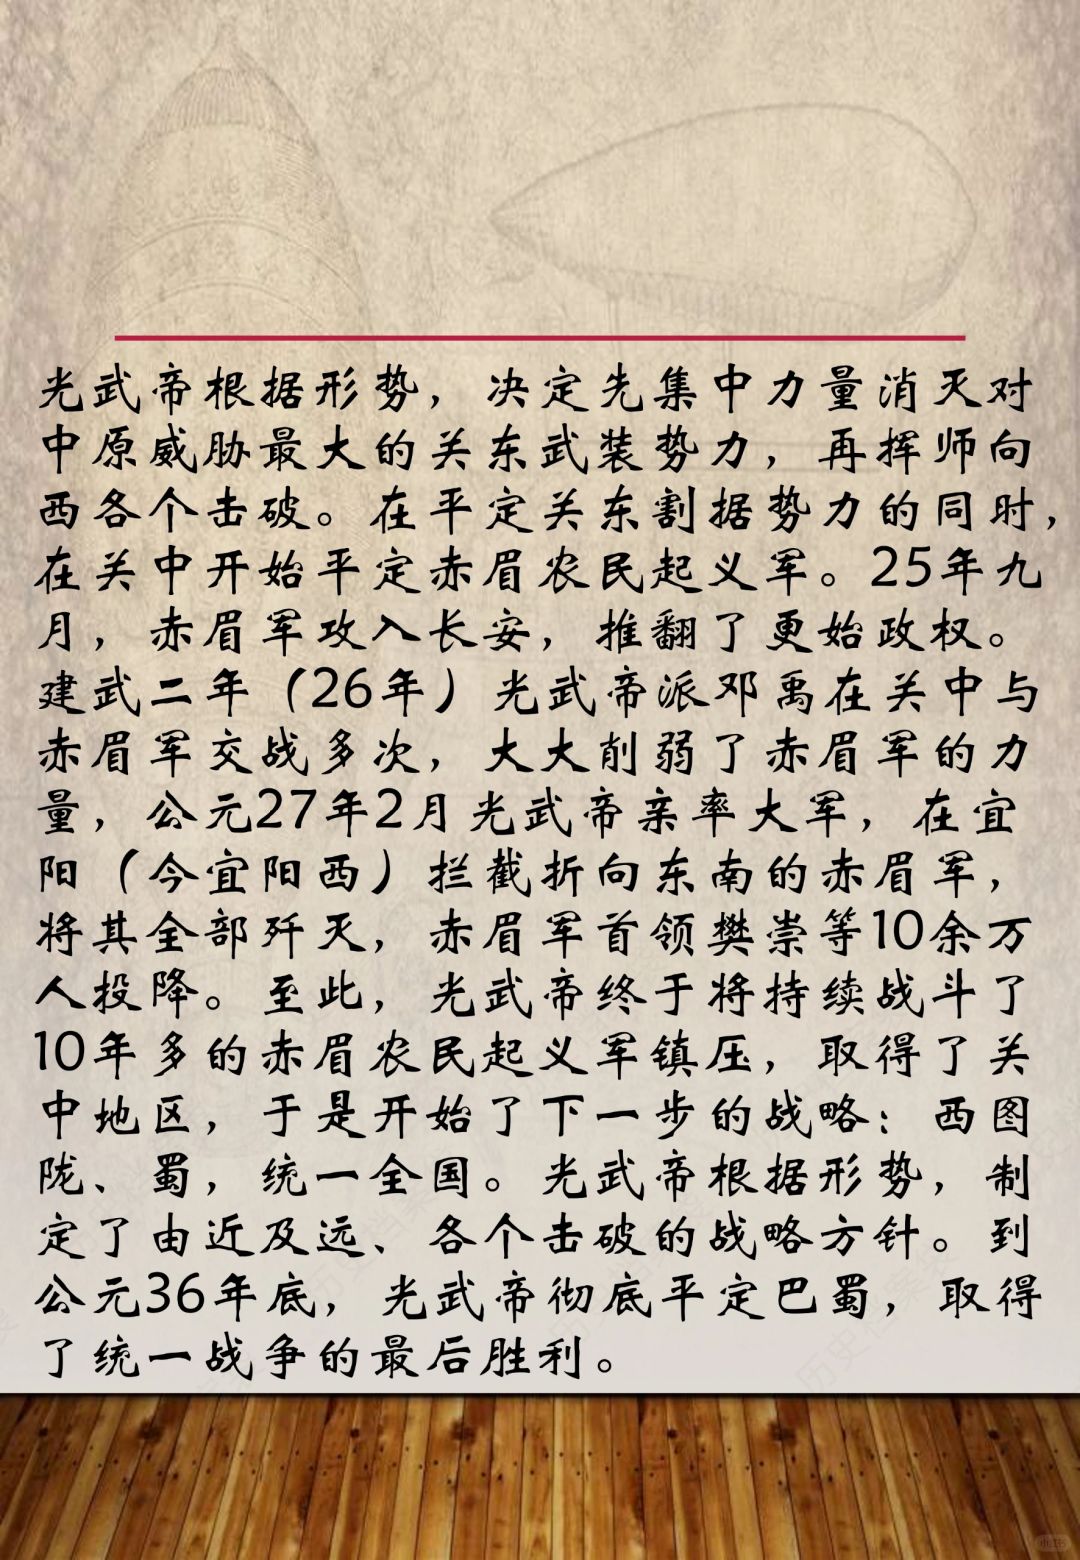 光武帝根据形势，决定先集中力量消灭对
中原威胁最大的关东武装势力，再挥师向
西各个击破。在平定关东割据势力的同时，
在关中开始平定赤眉农民起义军。25年九
月，赤眉军攻入长安，推翻了更始政权。
建武二年（26年）光武帝派邓禹在关中与
赤眉军交战多次，大大削弱了赤眉军的力
量，公元27年2月光武帝亲率大军，在宜
阳（今宜阳西）拦截折向东南的赤眉军，
将其全部歼灭，赤眉军首领樊崇等10余万
人投降。至此，光武帝终于将持续战斗了
10年多的赤眉农民起义军镇压，取得了关
中地区，于是开始了下一步的战略：西图
陇、蜀，统一全国。光武帝根据形势，制
定了由近及远、各个击破的战略方针。到
公元36年底，光武帝彻底平定巴蜀，取得
了统一战争的最后胜利。